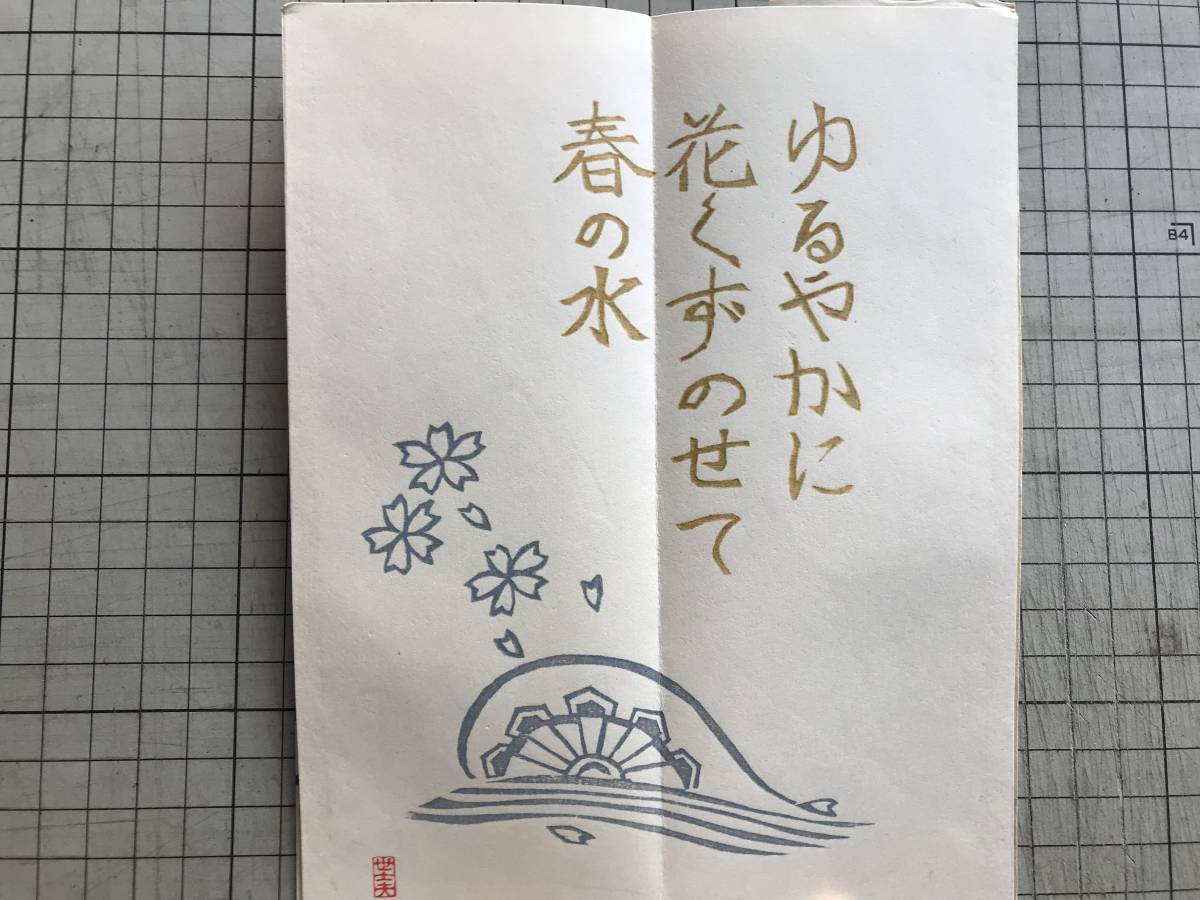 ゆるやかに
花くずのせて
春の水
B4